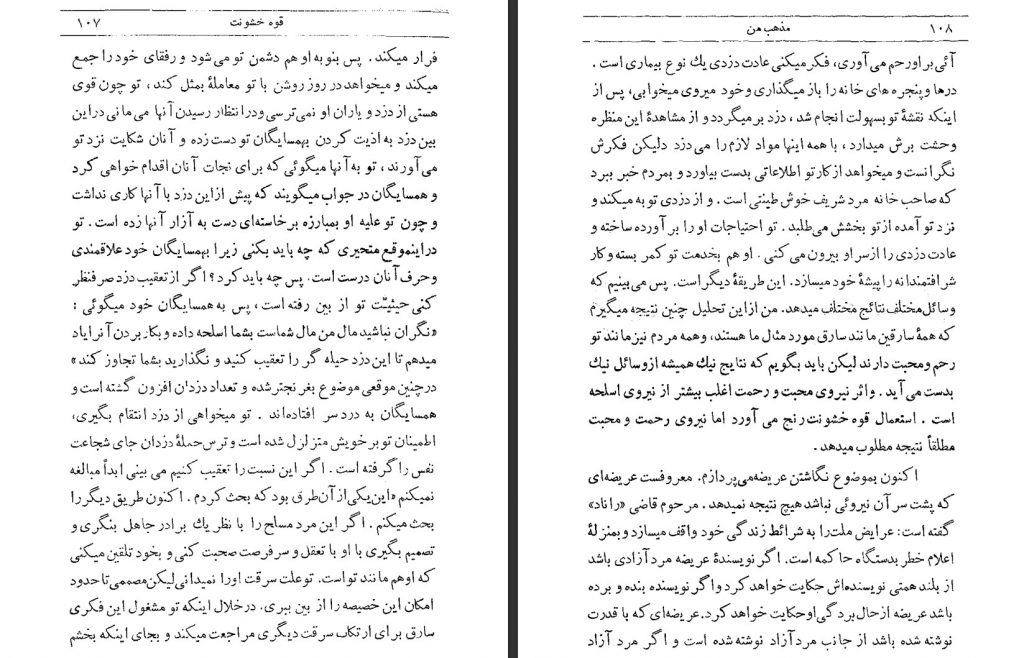 قوه خشونت ۱۰۷
فرار میکند . پس بنوبه او هم دشمن تو می شود و رفقای خود را جمع
میکند و میخواهد در روز روشن با تو معاملهٔ بمثل کند ، تو چون قوی
هستی از دزد و یاران او نمی ترسی و درانتظار رسیدن آنها می مانی در این
بین دزد به اذیت کردن بهمسایگان تو دست زده و آنان شکایت نزد تو
می آورند ، تو به آنها میگوئی که برای نجات آنان اقدام خواهی کرد
و همسایگان در جواب میگویند که پیش از این دزد با آنها کاری نداشت
و چون تو علیه او بمبارزه برخاسته‌ای دست به آزار آنها زده است . تو
در اینموقع متحیری که چه باید بکنی زیرا بهمسایگان خود علاقمندی
و حرف آنان درست است . پس چه باید کرد ؟ اگر از تعقیب دزد صرفنظر
کنی حیثیّت تو از بین رفته است ، پس به همسایگان خود میگوئی :
«نگران نباشید مال من مال شماست بشما اسلحه داده و بکار بردن آنرا یاد
میدهم تا این دزد حیله گر را تعقیب کنید و نگذارید بشما تجاوز کند»
در چنین موقعی موضوع بغرنجتر شده و تعداد دزدان افزون گشته است و
همسایگان به دردسر افتاده‌اند . تو میخواهی از دزد انتقام بگیری،
اطمینان تو بر خویش متزلزل شده است و ترس حملهٔ دزدان جای شجاعت
نفس را گرفته است . اگر این نسبت را تعقیب کنیم می بینی ابداً مبالغه
نمیکنم «این یکی از آن طرق بود که بحث کردم . اکنون طریق دیگر را
بحث میکنم . اگر این مرد مسلح را با نظر یك برادر جاهل بنگری و
تصمیم بگیری با او با تعقل و سر فرصت صحبت کنی و بخود تلقین میکنی
که او هم مانند تو است. تو علت سرقت او را نمیدانی لیکن مصممی تا حدود
امکان این خصیصه را از بین ببری . در خلال اینکه تو مشغول این فکری
سارق برای ارتکاب سرقت دیگری مراجعت میکند و بجای اینکه بخشم
۱۰۸ مذهب من
آئی بر او رحم می آوری ، فکر میکنی عادت دزدی یك نوع بیماری است .
درها و پنجره های خانه را باز میگذاری و خود میروی میخوابی، پس از
اینکه نقشهٔ تو بسهولت انجام شد ، دزد برمیگردد و از مشاهدهٔ این منظره
وحشت برش میدارد ، با همه اینها مواد لازم را می دزد دلیکن فکرش
نگرانست و میخواهد از کار تو اطلاعاتی بدست بیاورد و بمردم خبر ببرد
که صاحب خانه مرد شریف خوش طینتی است . و از دزدی توبه میکند و
نزد تو آمده از تو بخشش می‌طلبد . تو احتیاجات او را بر آورده ساخته و
عادت دزدی را از سر او بیرون می کنی . او هم بخدمت تو کمر بسته و کار
شرافتمندانه را پیشهٔ خود میسازد. این طریقهٔ دیگر است. پس می بینیم که
وسائل مختلف نتائج مختلف میدهد. من از این تحلیل چنین نتیجه میگیرم
که همهٔ سارقین مانند سارق مورد مثال ما هستند، و همه مردم نیز مانند تو
رحم و محبت دارند لیکن باید بگویم که نتایج نیك همیشه از وسائل نیك
بدست می آید . و اثر نیروی محبت و رحمت اغلب بیشتر از نیروی اسلحه
است . استعمال قوه خشونت رنج می آورد اما نیروی رحمت و محبت
مطلقاً نتیجه مطلوب میدهد .
اکنون بموضوع نگاشتن عریضه می پردازم. معروفست عریضه‌ای
که پشت سر آن نیروئی نباشد هیچ نتیجه نمیدهد. مرحوم قاضی «راناد»
گفته است : عرایض ملت را به شرائط زندگی خود واقف میسازد و بمنزلهٔ
اعلام خطر بدستگاه حاکمه است. اگر نویسندهٔ عریضه مرد آزادی باشد
از بلند همتی نویسنده‌اش حکایت خواهد کرد و اگر نویسنده بنده و برده
باشد عریضه از حال بردگی او حکایت خواهد کرد. عریضه‌ای که با قدرت
نوشته شده باشد از جانب مرد آزاد نوشته شده است و اگر مرد آزاد